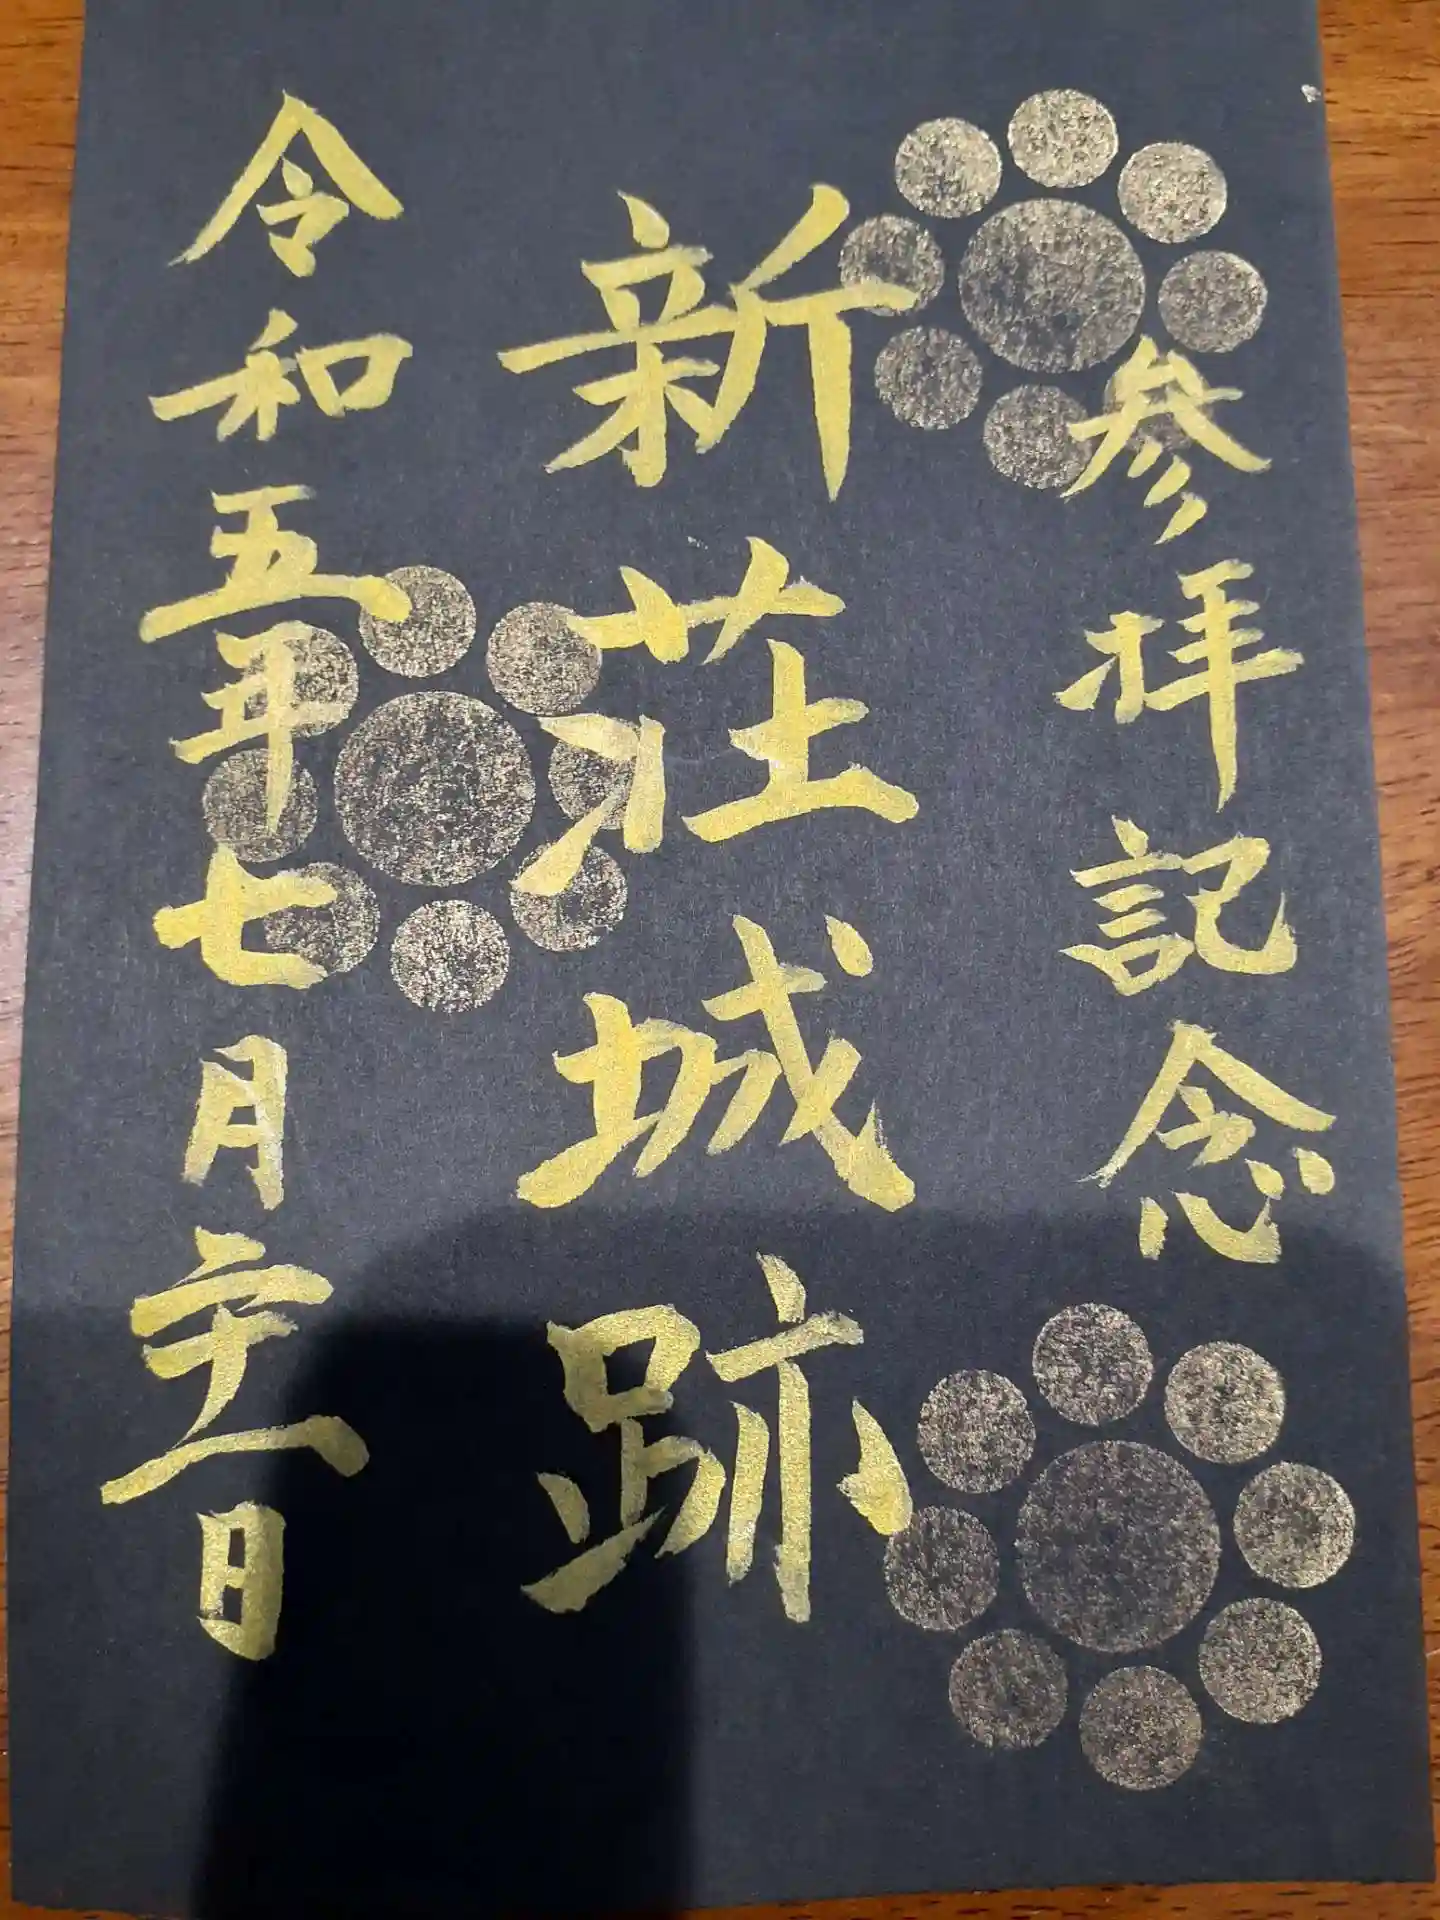 參拝記念
新荘城跡
令和五年七月廿一日